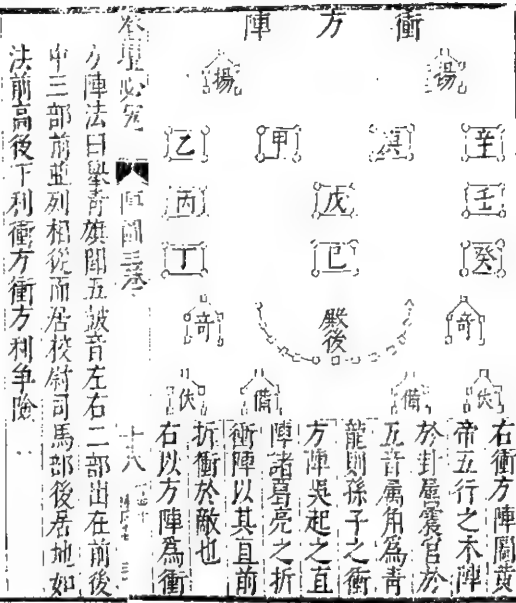 衝方陣
揚
揚
辛
庚
甲
乙
壬
戊
丙
癸
己
丁
奇
殿後
奇
伏
備
備
伏
右衝方陣圖黄
帝五行之木陣
於卦屬震官於
五音屬角為青
龍則孫子之衝
方陣吳起之直
陣諸葛亮之折
衝陣以其直前
折衝於敵也
右以方陣爲衝
登壇必究
陣圖三卷
十八
方陣法曰舉青旗聞五鼓音左右二部出在前後
中三部前並列相從而居校尉司馬部後居地如
法前高後下利衝方衝方利争險